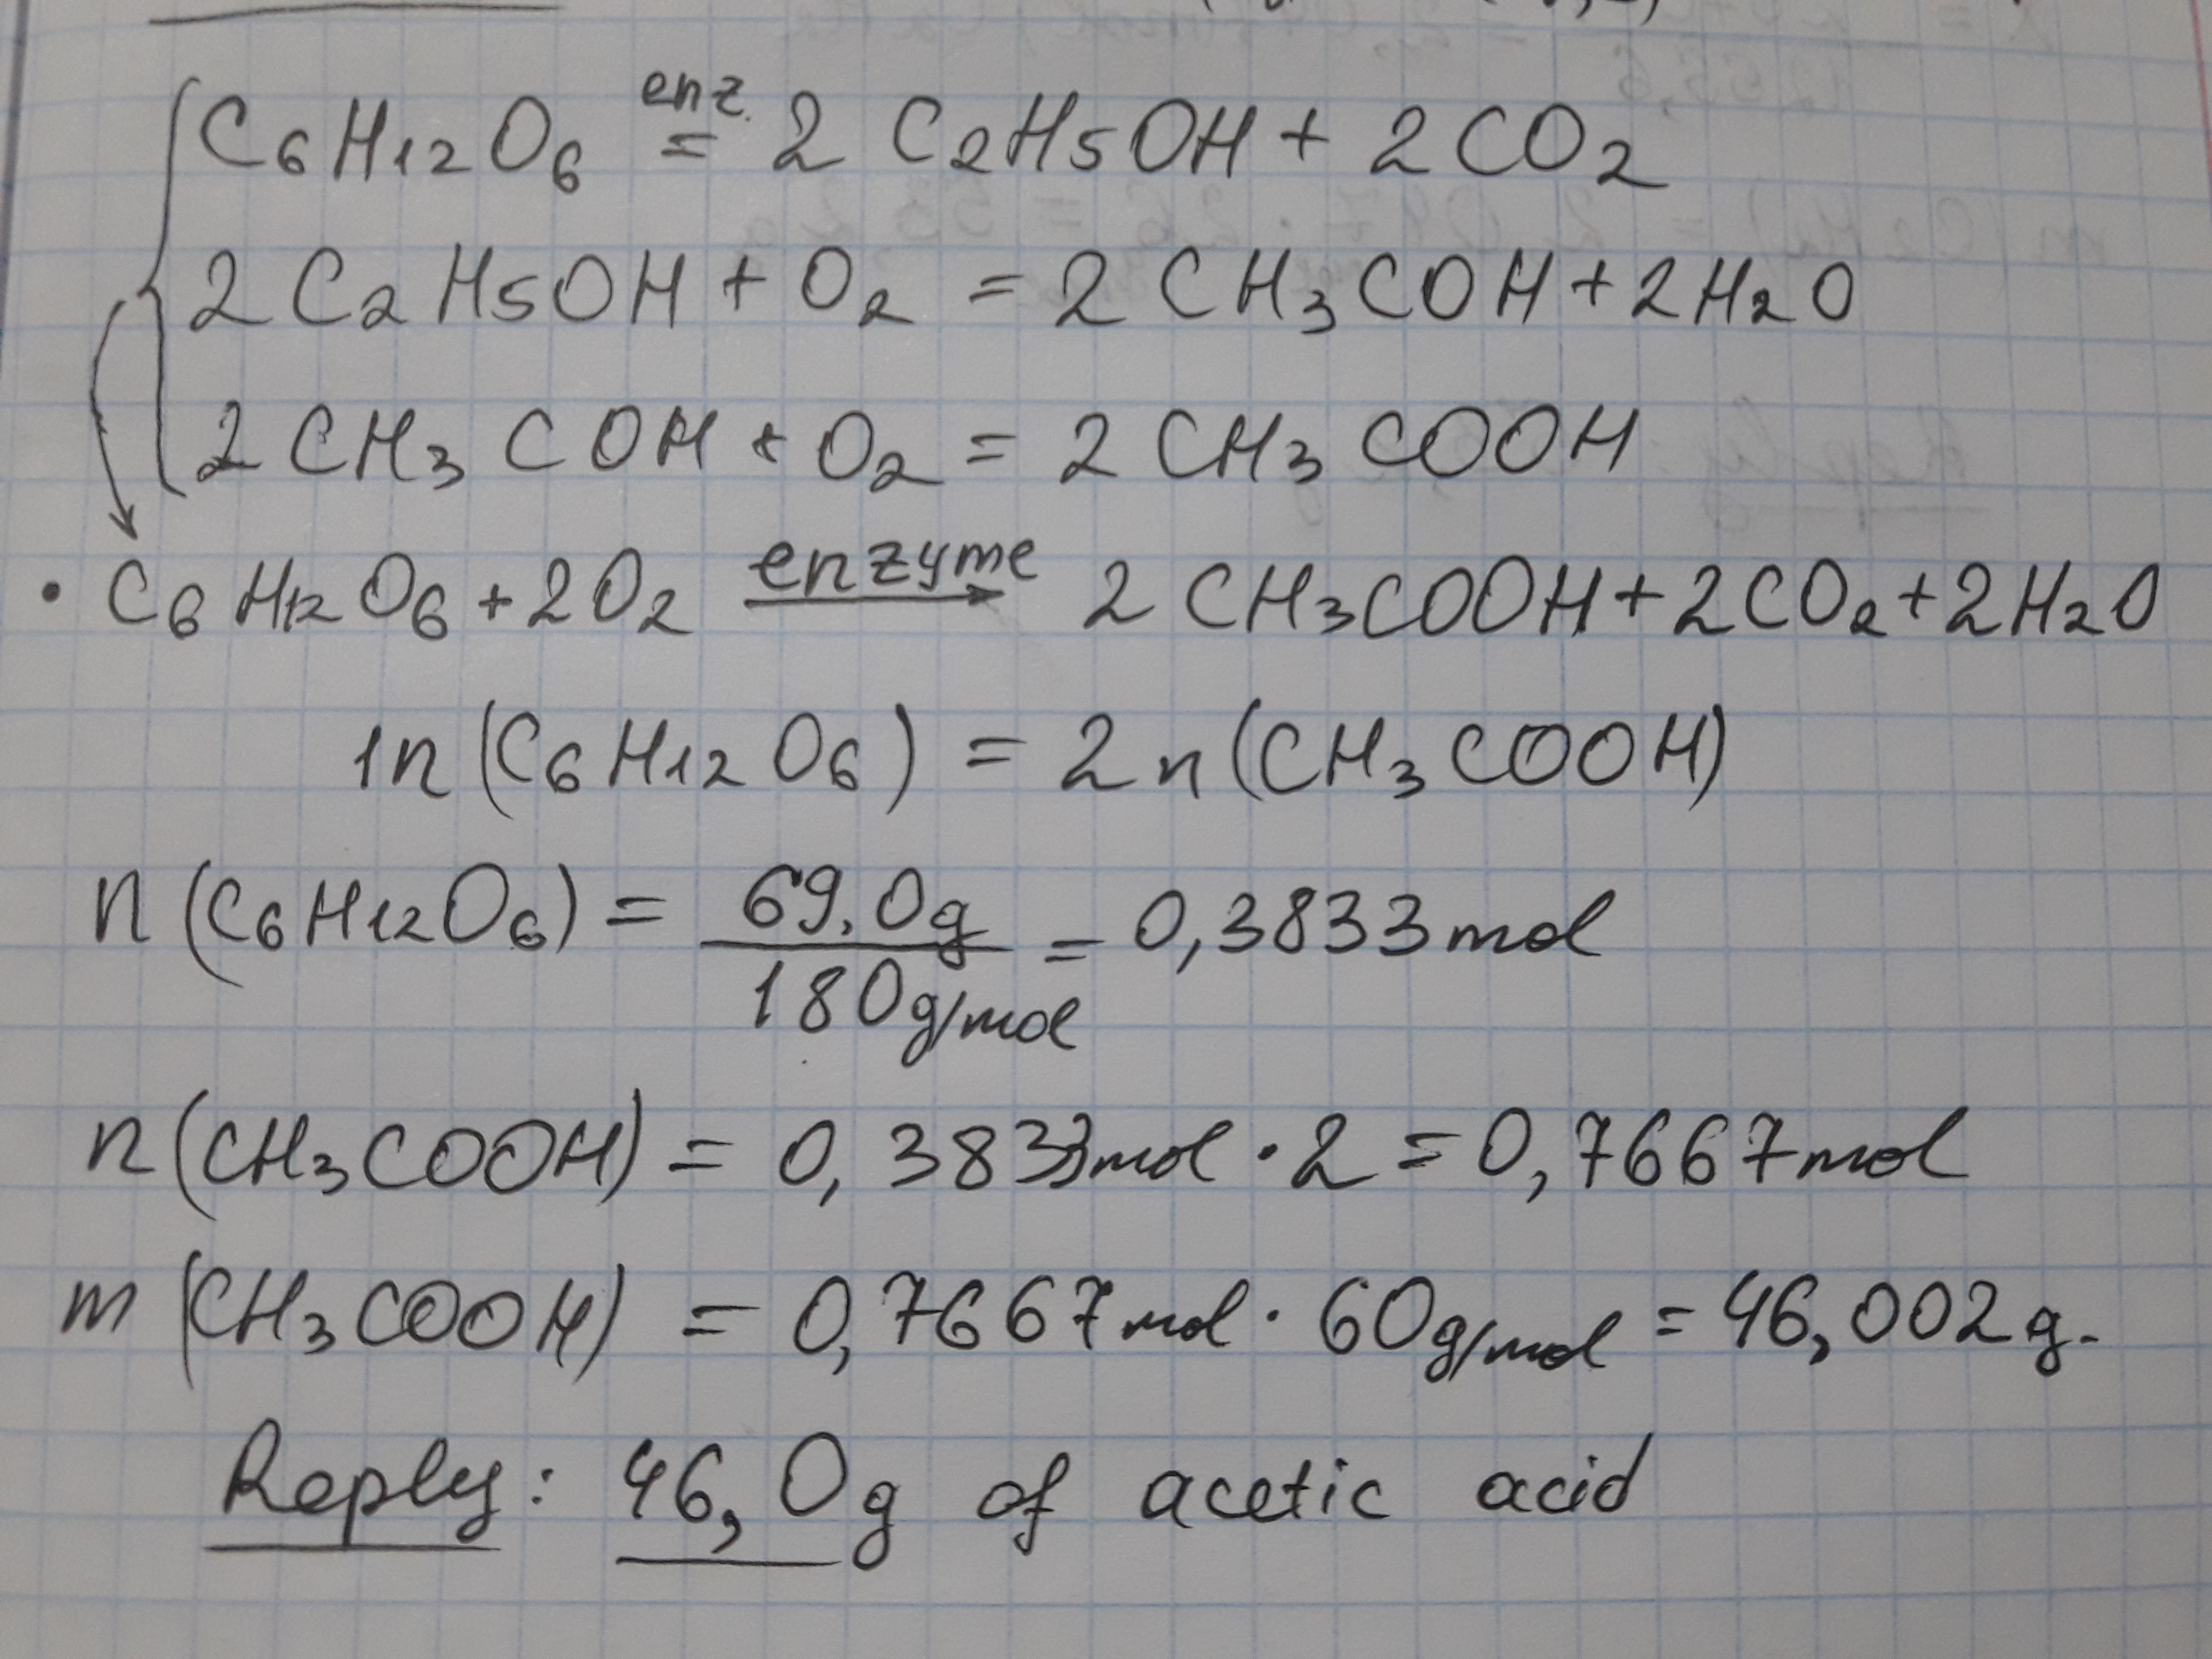 C₆H₁₂O₆ enz. = 2 C₂H₅OH + 2CO₂
2 C₂H₅OH + O₂ = 2 CH₃COH + 2H₂O
2 CH₃COH + O₂ = 2 CH₃COOH
• C₆H₁₂O₆ + 2O₂ enzyme → 2 CH₃COOH + 2CO₂ + 2H₂O
1n (C₆H₁₂O₆) = 2n (CH₃COOH)
n (C₆H₁₂O₆) = 69.0g / 180g/mol = 0,3833mol
n (CH₃COOH) = 0,3833mol · 2 = 0,7667mol
m (CH₃COOH) = 0,7667mol · 60g/mol = 46,002g.
Reply: 46,0g of acetic acid